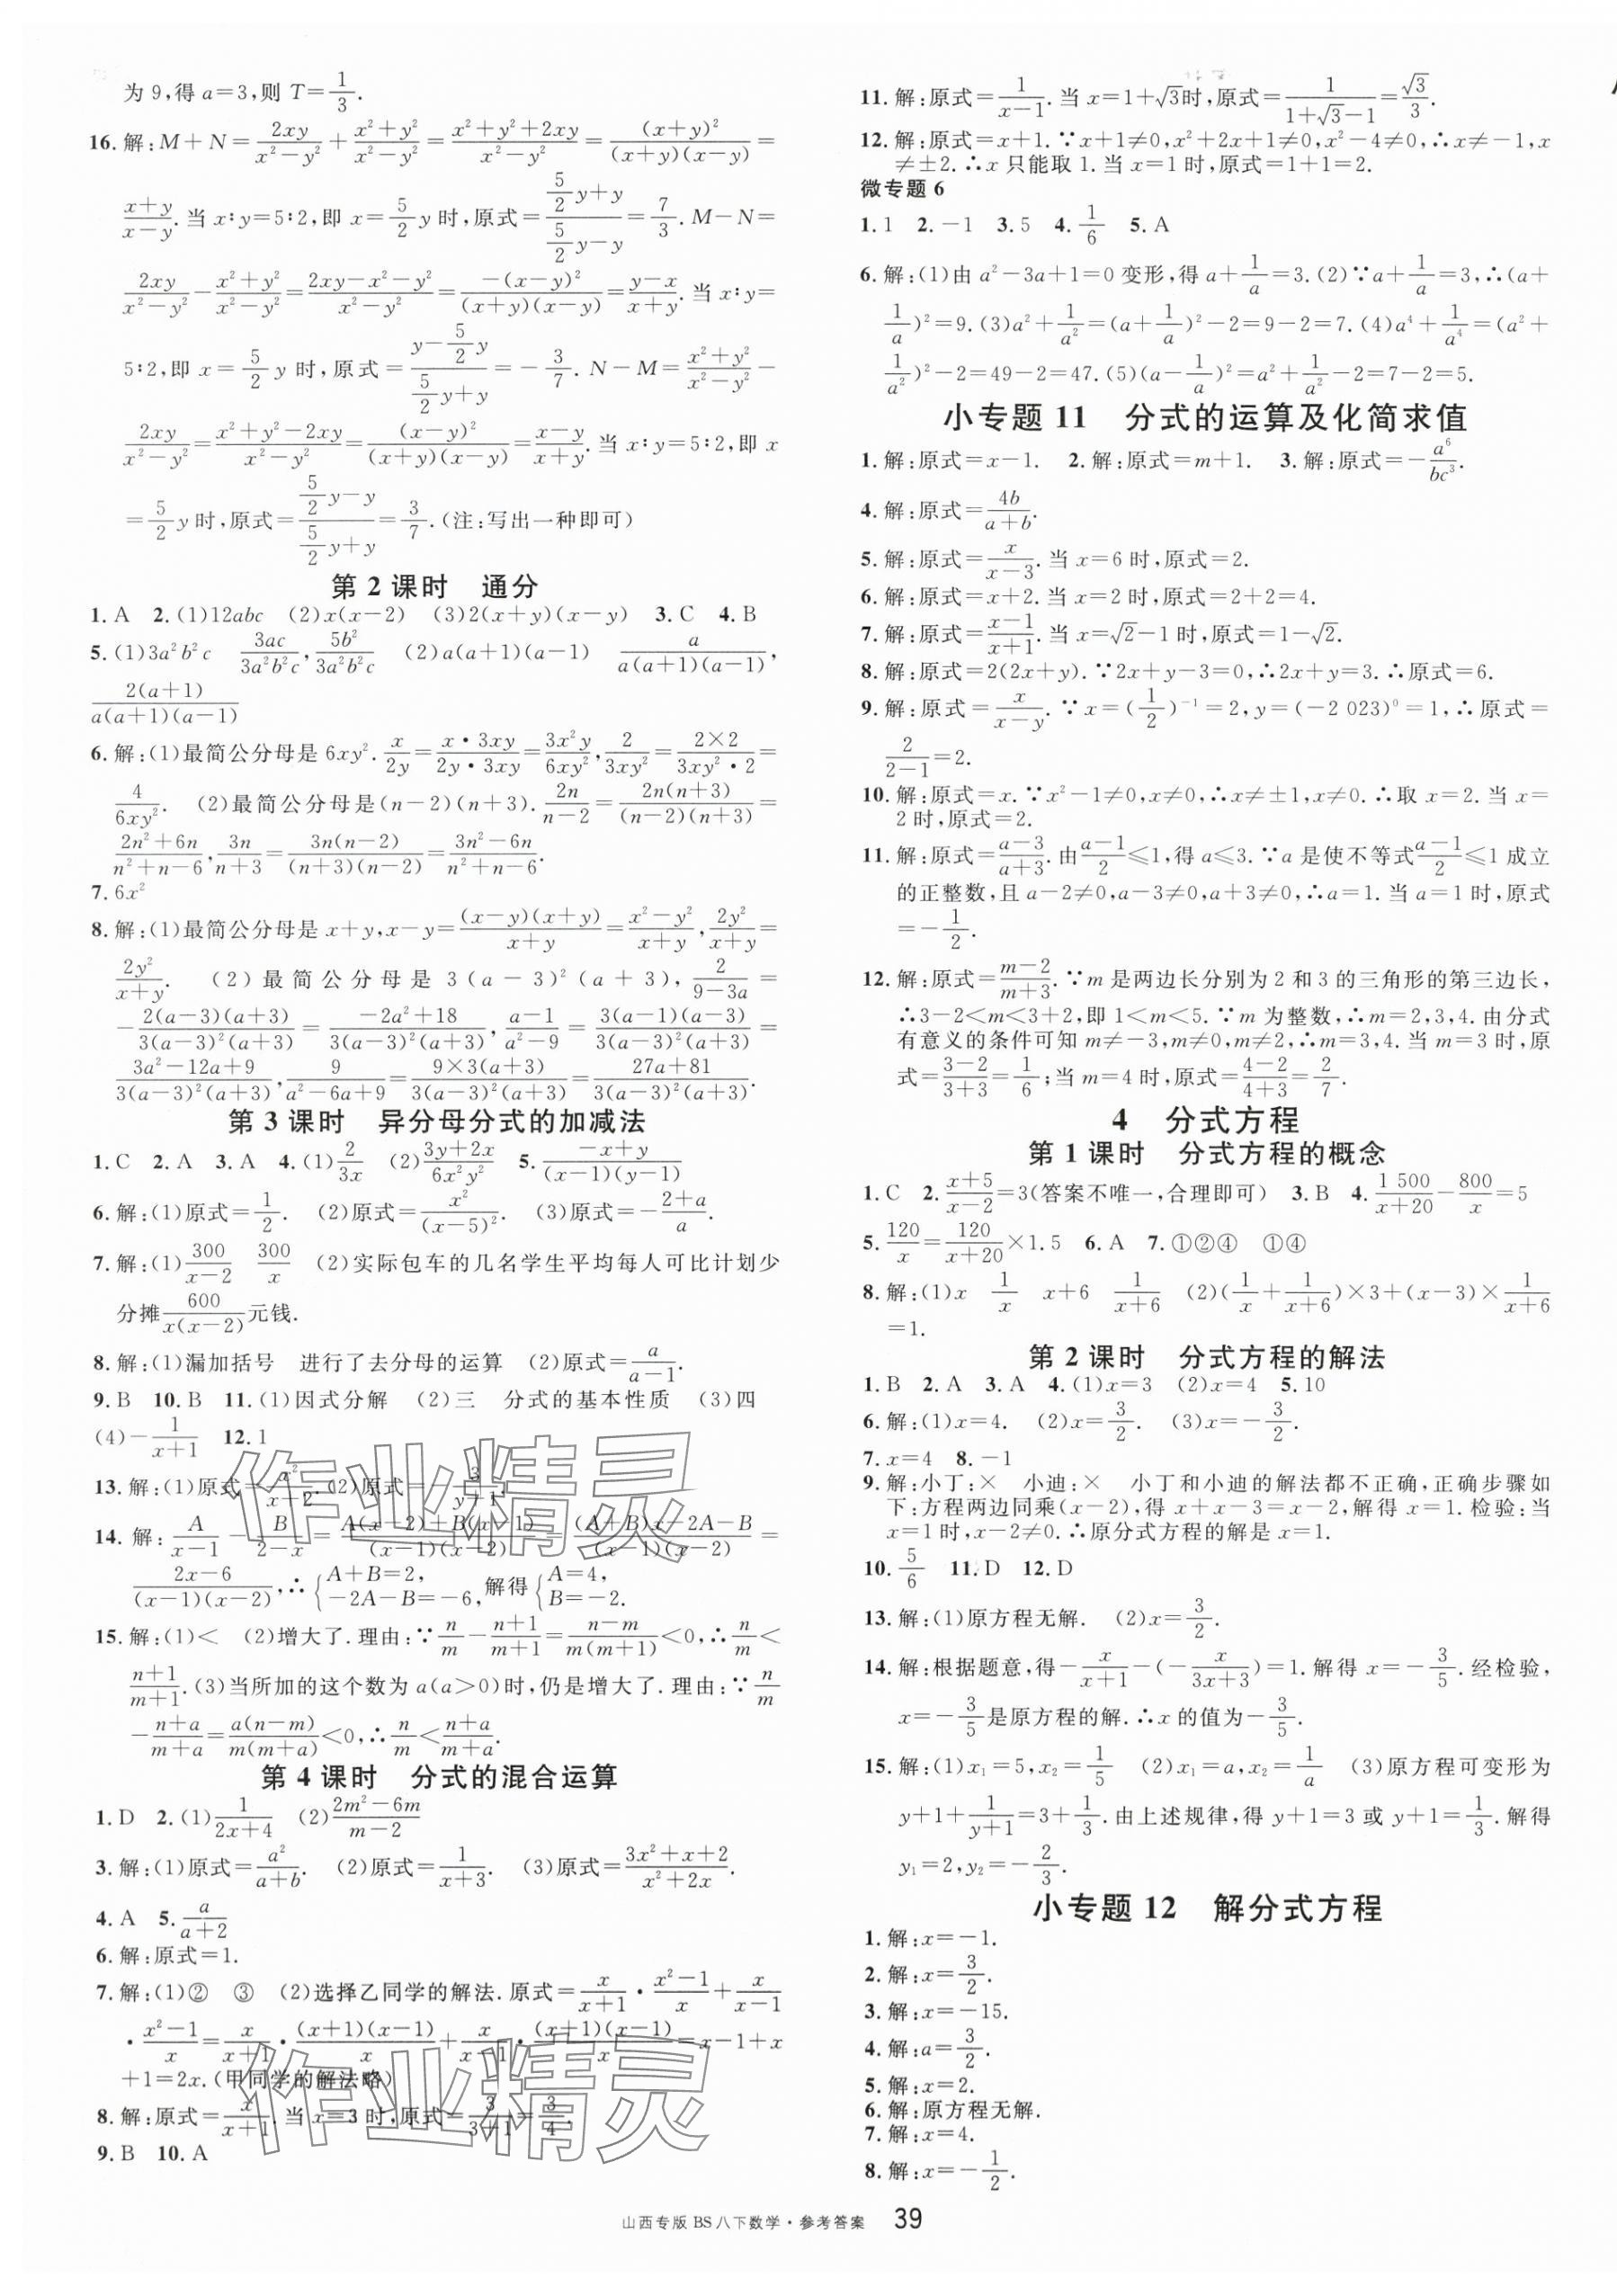 为9,得a=3,则T=1/3.
16.解:M+N=2xy/(x²-y²)+(x²+y²)/(x²-y²)=(x²+y²+2xy)/(x²-y²)=(x+y)²/((x+y)(x-y))=
(x+y)/(x-y).当x∶y=5∶2,即x=5/2 y时,原式=(5/2 y+y)/(5/2 y-y)=7/3.M-N=
2xy/(x²-y²)-(x²+y²)/(x²-y²)=(2xy-x²-y²)/(x²-y²)=-(x-y)²/((x+y)(x-y))=(y-x)/(x+y).当x∶y=
5∶2,即x=5/2 y时,原式=(y-5/2 y)/(5/2 y+y)=-3/7.N-M=(x²+y²)/(x²-y²)-
2xy/(x²-y²)=(x²+y²-2xy)/(x²-y²)=(x-y)²/((x+y)(x-y))=(x-y)/(x+y).当x∶y=5∶2,即x
=5/2 y时,原式=(5/2 y-y)/(5/2 y+y)=3/7.(注:写出一种即可)
第2课时 通分
1.A 2.(1)12abc (2)x(x-2) (3)2(x+y)(x-y) 3.C 4.B
5.(1)3a²b²c 3ac/(3a²b²c),5b²/(3a²b²c) (2)a(a+1)(a-1) a/(a(a+1)(a-1)),
2(a+1)/(a(a+1)(a-1))
6.解:(1)最简公分母是6xy².x/(2y)=(x·3xy)/(2y·3xy)=3x²y/(6xy²),2/(3xy²)=(2×2)/(3xy²·2)=
4/(6xy²). (2)最简公分母是(n-2)(n+3).2n/(n-2)=2n(n+3)/((n-2)(n+3))=
(2n²+6n)/(n²+n-6),3n/(n+3)=3n(n-2)/((n+3)(n-2))=(3n²-6n)/(n²+n-6).
7.6x²
8.解:(1)最简公分母是x+y,x-y=(x-y)(x+y)/(x+y)=(x²-y²)/(x+y),2y²/(x+y)=
2y²/(x+y). (2)最简公分母是3(a-3)²(a+3),2/(9-3a)=
-2(a-3)(a+3)/(3(a-3)²(a+3))=(-2a²+18)/(3(a-3)²(a+3)),(a-1)/(a²-9)=3(a-1)(a-3)/(3(a-3)²(a+3))=
(3a²-12a+9)/(3(a-3)²(a+3)),9/(a²-6a+9)=9×3(a+3)/(3(a-3)²(a+3))=(27a+81)/(3(a-3)²(a+3)).
第3课时 异分母分式的加减法
1.C 2.A 3.A 4.(1)2/(3x) (2)(3y+2x)/(6x²y²) 5.(-x+y)/((x-1)(y-1))
6.解:(1)原式=1/2. (2)原式=x²/(x-5)². (3)原式=-(2+a)/a.
7.解:(1)300/(x-2) 300/x (2)实际包车的几名学生平均每人可比计划少
分摊600/(x(x-2))元钱.
8.解:(1)漏加括号 进行了去分母的运算 (2)原式=a/(a-1).
9.B 10.B 11.(1)因式分解 (2)三 分式的基本性质 (3)四
(4)-1/(x+1) 12.1
13.解:(1)原式=x²/(x+2).(2)原式=3/(y+1).
14.解:A/(x-1)-B/(2-x)=(A(x-2)+B(x-1))/((x-1)(x-2))=((A+B)x-2A-B)/((x-1)(x-2))=
(2x-6)/((x-1)(x-2)),∴{A+B=2, -2A-B=-6,解得{A=4, B=-2.
15.解:(1)< (2)增大了.理由:∵n/m-(n+1)/(m+1)=(n-m)/(m(m+1))<0,∴n/m<
(n+1)/(m+1).(3)当所加的这个数为a(a>0)时,仍是增大了.理由:∵n/m
-(n+a)/(m+a)=a(n-m)/(m(m+a))<0,∴n/m<(n+a)/(m+a).
第4课时 分式的混合运算
1.D 2.(1)1/(2x+4) (2)(2m²-6m)/(m-2)
3.解:(1)原式=a²/(a+b). (2)原式=1/(x+3). (3)原式=(3x²+x+2)/(x²+2x).
4.A 5.a/(a+2)
6.解:原式=1.
7.解:(1)② ③ (2)选择乙同学的解法.原式=x/(x+1)·(x²-1)/x+x/(x-1)
·(x²-1)/x=x/(x+1)·(x+1)(x-1)/x+x/(x-1)·(x+1)(x-1)/x=x-1+x
+1=2x.(甲同学的解法略)
8.解:原式=x/(x+1).当x=3时,原式=3/(3+1)=3/4.
9.B 10.A
11.解:原式=1/(x-1).当x=1+√3时,原式=1/(1+√3-1)=√3/3.
12.解:原式=x+1.∵x+1≠0,x²+2x+1≠0,x²-4≠0,∴x≠-1,x
≠±2.∴x只能取1.当x=1时,原式=1+1=2.
微专题6
1.1 2.-1 3.5 4.1/6 5.A
6.解:(1)由a²-3a+1=0变形,得a+1/a=3.(2)∵a+1/a=3,∴(a+
1/a)²=9.(3)a²+1/a²=(a+1/a)²-2=9-2=7.(4)a⁴+1/a⁴=(a²+
1/a²)²-2=49-2=47.(5)(a-1/a)²=a²+1/a²-2=7-2=5.
小专题11 分式的运算及化简求值
1.解:原式=x-1. 2.解:原式=m+1. 3.解:原式=-a⁶/(bc³).
4.解:原式=4b/(a+b).
5.解:原式=x/(x-3).当x=6时,原式=2.
6.解:原式=x+2.当x=2时,原式=2+2=4.
7.解:原式=(x-1)/(x+1).当x=√2-1时,原式=1-√2.
8.解:原式=2(2x+y).∵2x+y-3=0,∴2x+y=3.∴原式=6.
9.解:原式=x/(x-y).∵x=(1/2)⁻¹=2,y=(-2 023)⁰=1,∴原式=
2/(2-1)=2.
10.解:原式=x.∵x²-1≠0,x≠0,∴x≠±1,x≠0.∴取x=2.当x=
2时,原式=2.
11.解:原式=(a-3)/(a+3).由(a-1)/2≤1,得a≤3.∵a是使不等式(a-1)/2≤1成立
的正整数,且a-2≠0,a-3≠0,a+3≠0,∴a=1.当a=1时,原式
=-1/2.
12.解:原式=(m-2)/(m+3).∵m是两边长分别为2和3的三角形的第三边长,
∴3-2<m<3+2,即1<m<5.∵m为整数,∴m=2,3,4.由分式
有意义的条件可知m≠-3,m≠0,m≠2,∴m=3,4.当m=3时,原
式=(3-2)/(3+3)=1/6;当m=4时,原式=(4-2)/(4+3)=2/7.
4 分式方程
第1课时 分式方程的概念
1.C 2.(x+5)/(x-2)=3(答案不唯一,合理即可) 3.B 4.1 500/(x+20)-800/x=5
5.120/x=120/(x+20)×1.5 6.A 7.①②④ ①④
8.解:(1)x 1/x x+6 1/(x+6) (2)(1/x+1/(x+6))×3+(x-3)×1/(x+6)
=1.
第2课时 分式方程的解法
1.B 2.A 3.A 4.(1)x=3 (2)x=4 5.10
6.解:(1)x=4. (2)x=3/2. (3)x=-3/2.
7.x=4 8.-1
9.解:小丁:× 小迪:× 小丁和小迪的解法都不正确,正确步骤如
下:方程两边同乘(x-2),得x+x-3=x-2,解得x=1.检验:当
x=1时,x-2≠0.∴原分式方程的解是x=1.
10.5/6 11.D 12.D
13.解:(1)原方程无解. (2)x=3/2.
14.解:根据题意,得-x/(x+1)-(-x/(3x+3))=1.解得x=-3/5.经检验,
x=-3/5是原方程的解.∴x的值为-3/5.
15.解:(1)x₁=5,x₂=1/5 (2)x₁=a,x₂=1/a (3)原方程可变形为
y+1+1/(y+1)=3+1/3.由上述规律,得y+1=3或y+1=1/3.解得
y₁=2,y₂=-2/3.
小专题12 解分式方程
1.解:x=-1.
2.解:x=3/2.
3.解:x=-15.
4.解:a=3/2.
5.解:x=2.
6.解:原方程无解.
7.解:x=4.
8.解:x=-1/2.
山西专版 BS八下数学·参考答案 39
作业精灵
作业精灵